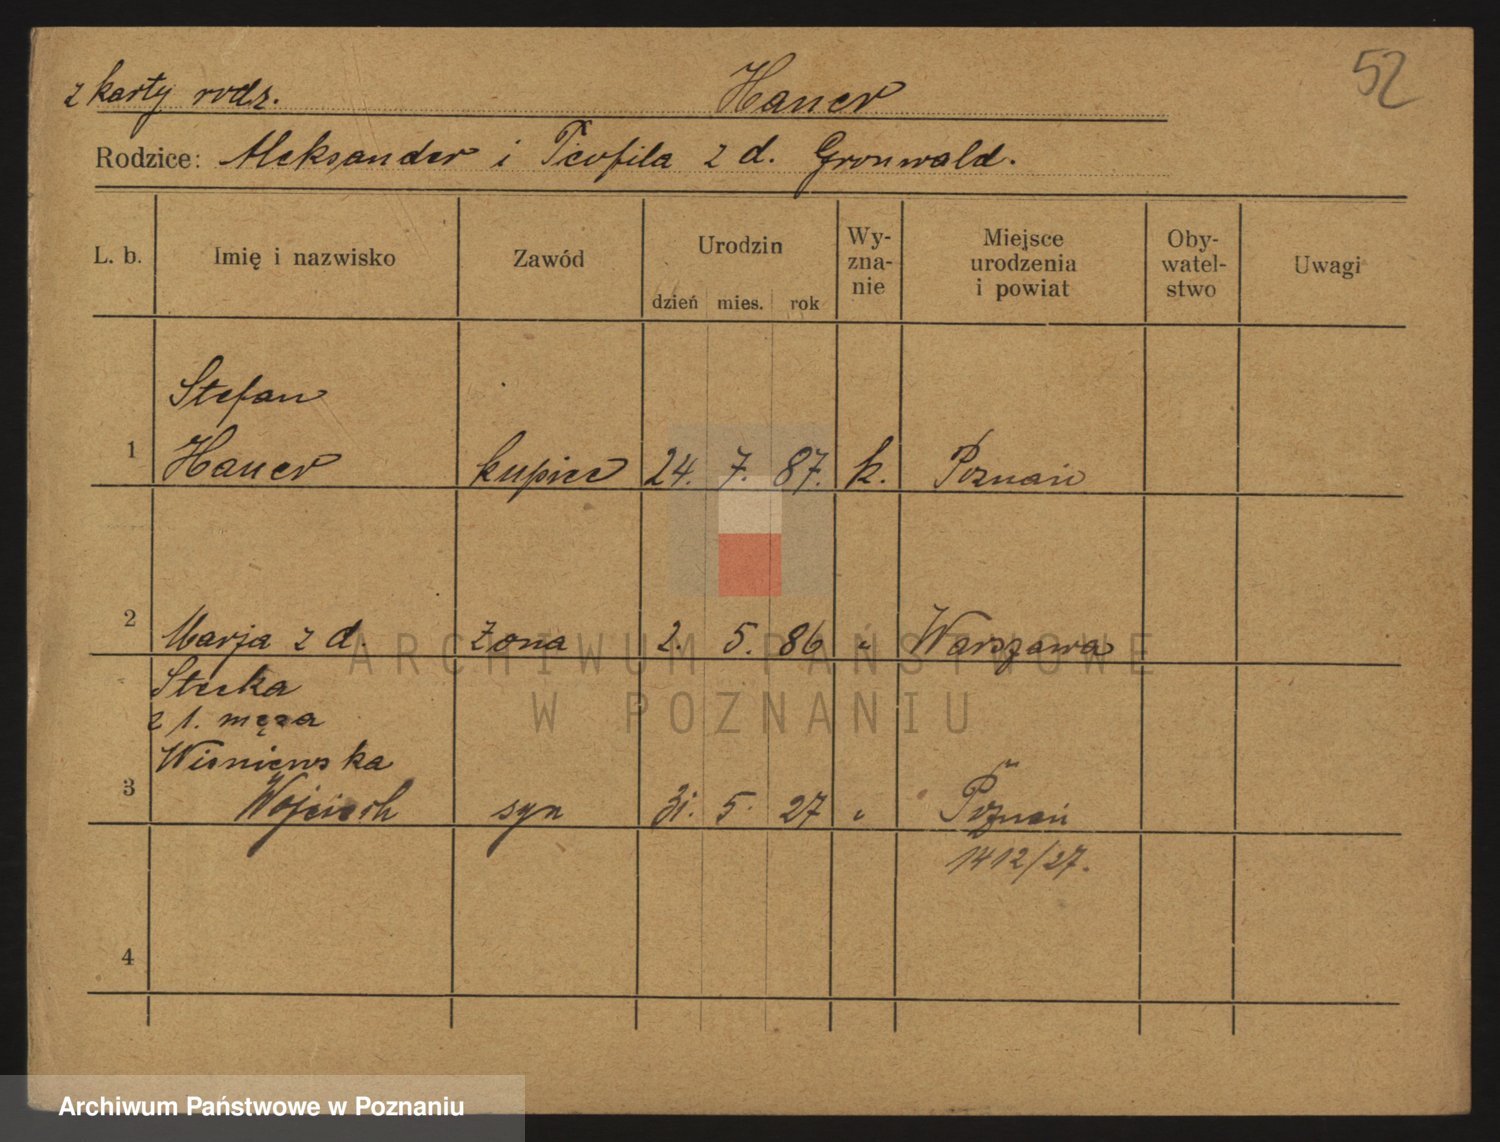 52
z karty rodz. Hauer
Rodzice: Aleksander i Teofila z d. Gronwald.
L. b. Imię i nazwisko Zawód Urodzin Wy-zna-nie Miejsce urodzenia i powiat Oby-watel-stwo Uwagi
dzień mies. rok
Stefan
1 Hauer kupiec 24. 7. 87. k. Poznań
2 Marja z d. żona 2. 5. 86 " Warszawa
Stecka
z 1. męża
Wiśniewska
3 Wojciech syn 31. 5. 27 " Poznań
1412/27.
4
ARCHIWUM PAŃSTWOWE
W POZNANIU
Archiwum Państwowe w Poznaniu